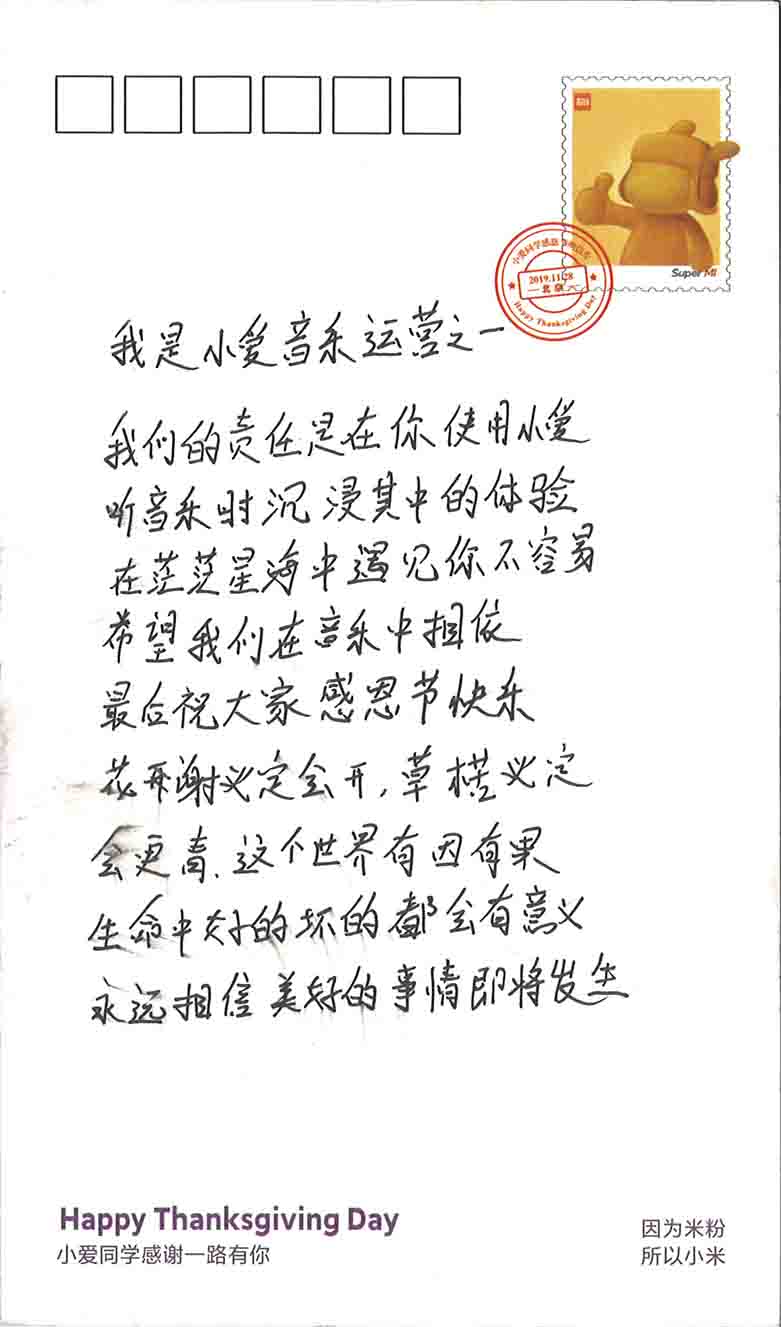 MI
Super MI
小爱同学感恩节明信片
2019.11.28
北京
Happy Thanksgiving Day
我是小爱音乐运营之一
我们的责任是在你使用小爱
听音乐时沉浸其中的体验
在茫茫星海中遇见你不容易
希望我们在音乐中相依
最后祝大家感恩节快乐
花开谢必定会开,草横必定
会更青.这个世界有因有果
生命中好的坏的都会有意义
永远相信美好的事情即将发生
Happy Thanksgiving Day
小爱同学感谢一路有你
因为米粉
所以小米